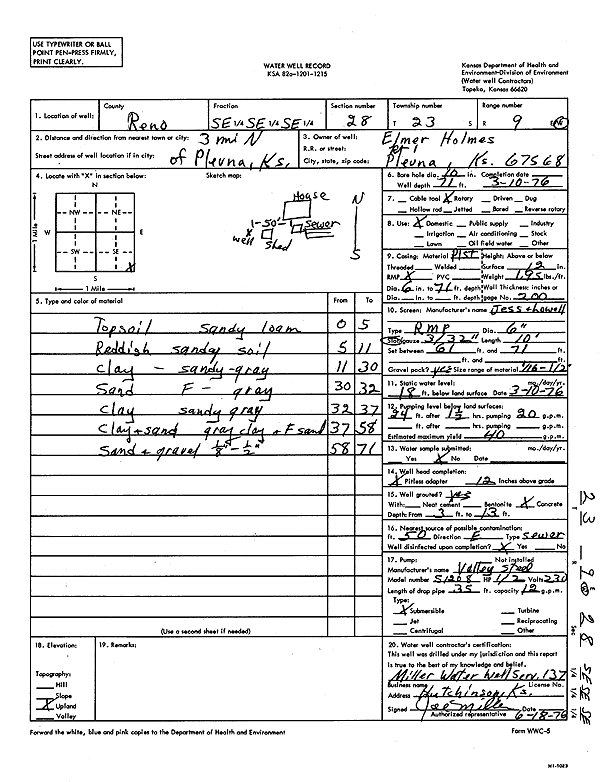 USE TYPEWRITER OR BALL
POINT PEN-PRESS FIRMLY,
PRINT CLEARLY.
WATER WELL RECORD
KSA 82a-1201-1215
Kansas Department of Health and
Environment-Division of Environment
(Water well Contractors)
Topeka, Kansas 66620
1. Location of well: County Reno Fraction SE 1/4 SE 1/4 SE 1/4 Section number 28 Township number T 23 S Range number R 9 E/W
2. Distance and direction from nearest town or city: 3 mi N
Street address of well location if in city: of Plevna, Ks.
3. Owner of well: Elmer Holmes
R.R. or street:
City, state, zip code: Plevna, Ks. 67568
4. Locate with "X" in section below: Sketch map:
N
NW NE
W E
SW SE
X
S
1 Mile
1 Mile
House
N
1-50'
Sewer
X
well
Shed
S
5. Type and color of material From To
Topsoil sandy loam 0 5
Reddish sandy soil 5 11
Clay - sandy-gray 11 30
Sand F - gray 30 32
Clay sandy gray 32 37
Clay + sand gray clay + F sand 37 58
Sand + gravel 1/8" - 1/2" 58 71
(Use a second sheet if needed)
6. Bore hole dia. 10 in. Completion date
Well depth 71 ft. 3-10-76
7. Cable tool X Rotary Driven Dug
Hollow rod Jetted Bored Reverse rotary
8. Use: X Domestic Public supply Industry
Irrigation Air conditioning Stock
Lawn Oil field water Other
9. Casing: Material Plst Height: Above or below
Threaded Welded Surface 12 in.
RMP X PVC Weight 1.95 lbs./ft.
Dia. 6 in. to 71 ft. depth Wall Thickness: inches or
Dia. in. to ft. depth gage No. 200
10. Screen: Manufacturer's name Jess + Lowell
Type RMP Dia. 6"
Slot/gauze 3/32" Length 10'
Set between 61 ft. and 71 ft.
ft. and ft.
Gravel pack? yes Size range of material 1/16-1/2"
11. Static water level: mo./day/yr.
18 ft. below land surface Date 3-10-76
12. Pumping level below land surfaces:
24 ft. after 1 1/2 hrs. pumping 20 g.p.m.
ft. after hrs. pumping g.p.m.
Estimated maximum yield 40 g.p.m.
13. Water sample submitted: mo./day/yr.
Yes X No Date
14. Well head completion:
X Pitless adapter 12 Inches above grade
15. Well grouted? yes
With: Neat cement Bentonite X Concrete
Depth: From 3 ft. to 13 ft.
16. Nearest source of possible contamination:
ft. 50 Direction E Type Sewer
Well disinfected upon completion? X Yes No
17. Pump: Not installed
Manufacturer's name Valley Steel
Model number S1208 HP 1/2 Volts 230
Length of drop pipe 35 ft. capacity 12 g.p.m.
Type:
X Submersible Turbine
Jet Reciprocating
Centrifugal Other
18. Elevation:
Topography:
Hill
Slope
X Upland
Valley
19. Remarks:
20. Water well contractor's certification:
This well was drilled under my jurisdiction and this report
is true to the best of my knowledge and belief.
Miller Water Well Serv. 137
Business name License No.
Address Hutchinson, Ks.
Signed Joe Miller 6-18-76
Authorized representative
Forward the white, blue and pink copies to the Department of Health and Environment
Form WWC-5
23 - 9 W 28 SE SE SE
Sec 1/4 1/4 1/4